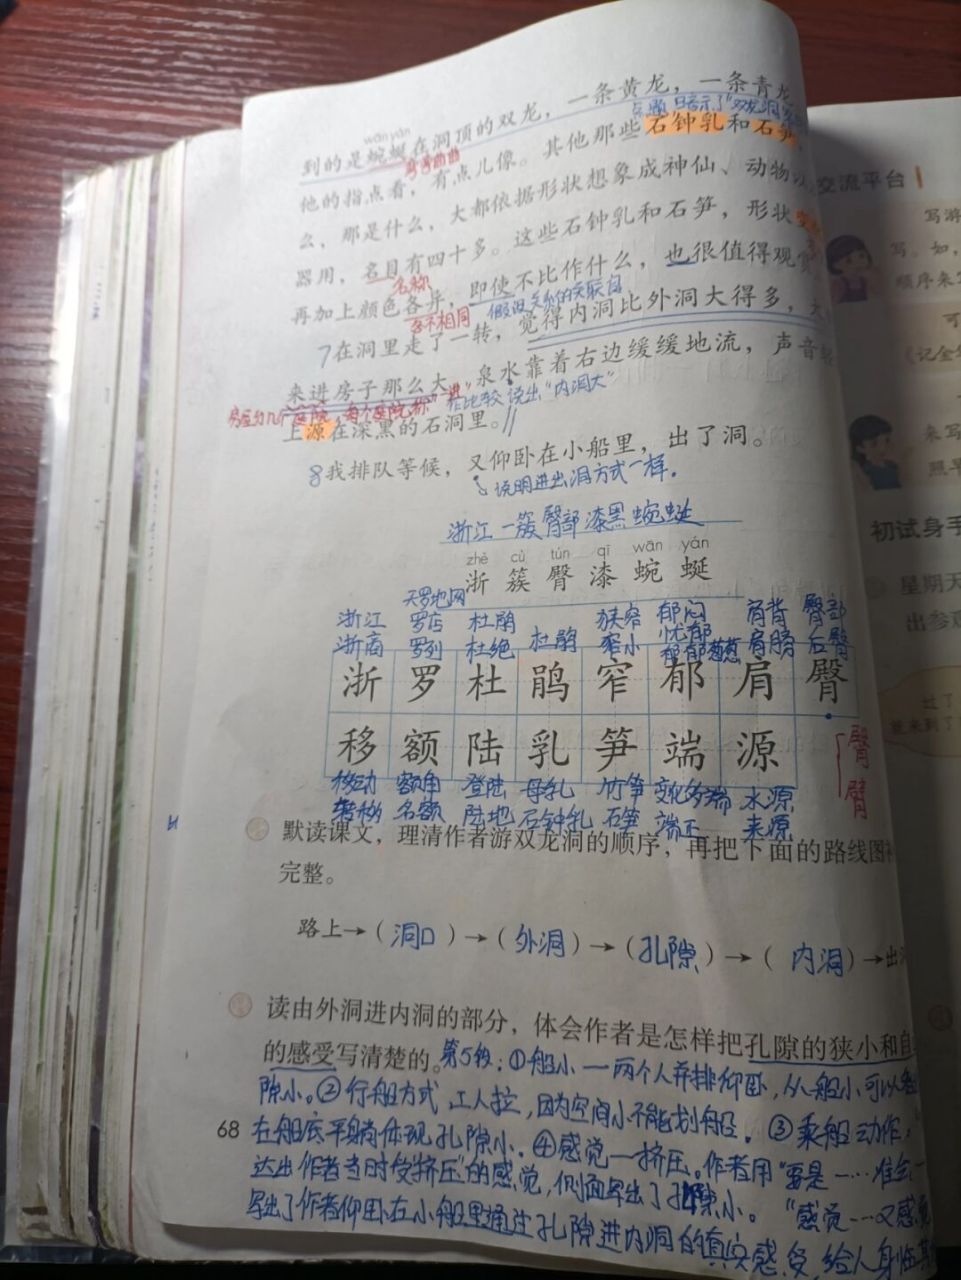 到的是蜿蜒在洞顶的双龙，一条黄龙，一条青龙
wān yán
弯弯曲曲
他的指点看，有点儿像。其他那些石钟乳和石笋
么，那是什么，大都依据形状想象成神仙、动物
器用，名目有四十多。这些石钟乳和石笋，形状变
名称
再加上颜色各异，即使不比作什么，也很值得观赏
各不相同
假设关系的关联词
7在洞里走了一转，觉得内洞比外洞大得多，大
来进房子那么大。泉水靠着右边缓缓地流，声音轻
作比较 说出“内洞大”
上源在深黑的石洞里。
8我排队等候，又仰卧在小船里，出了洞。
说明进出洞方式一样。
浙江 一簇 臀部 漆黑 蜿蜒
zhè cù tún qī wān yán
浙 簇 臀 漆 蜿 蜒
天罗地网
浙江 罗店 杜鹃 狭窄 郁闷 肩背 臀部
浙商 罗列 杜绝 杜鹃 窄小 忧郁 肩膀 后臀
郁郁葱葱
浙 罗 杜 鹃 窄 郁 肩 臀
移 额 陆 乳 笋 端 源
臀
臂
移动 额角 登陆 母乳 竹笋 变化多端 水源
转移 名额 陆地 石钟乳 石笋 端正 来源
默读课文，理清作者游双龙洞的顺序，再把下面的路线图补
完整。
路上→（洞口）→（外洞）→（孔隙）→（内洞）→出洞
读由外洞进内洞的部分，体会作者是怎样把孔隙的狭小和自
的感受写清楚的。第5段：①船小—两个人并排仰卧，从船小可以看出
隙小。②行船方式，工人拉，因为空间小不能划船。③乘船动作，
68
在船底平躺体现孔隙小。④感觉—挤压。作者用“要是……准会
达出作者当时受“挤压”的感觉，侧面写出了孔隙小。“感觉…又感觉
写出了作者仰卧在小船里通过孔隙进内洞的真实感受 给人身临其
交流平台
写游
写。如，
顺序来
可
《记金华
来写
初试身手
星期天
出参观
过了
就来到了